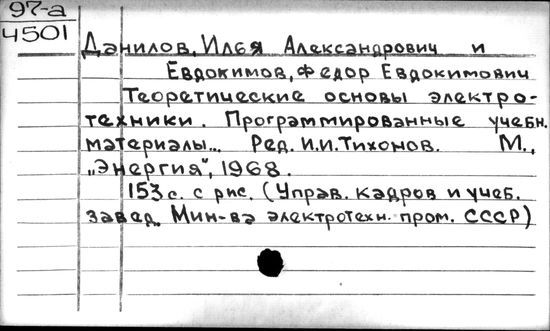 97-а
4501
Данилов, Илья Александрович и
Евдокимов, Федор Евдокимович
Теоретические основы электро-
техники. Программированные учебн.
материалы... Ред. И.И.Тихонов. М.,
„Энергия", 1968.
153 с. с рис. (Управ. кадров и учеб.
завед. Мин-ва электротехн. пром. СССР)